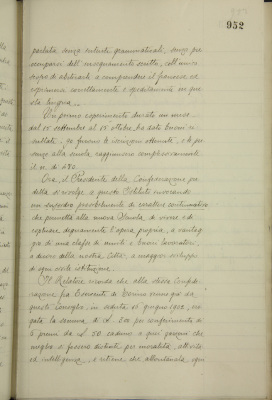 952
parlata senza intenti grammaticali, senza pre
occuparsi dell'insegnamento scritto, coll'unico
scopo di abituarli a comprendere il francese ed
esprimersi correttamente e speditamente in que
sta lingua.
Un primo esperimento durato un mese
dal 15 settembre al 15 ottobre ha dato buoni ri
sultati, 90 furono le iscrizioni ottenute, e le pre
senze alla scuola raggiunsero complessivamente
il n. di 450.
Ora, il Presidente della Confederazione pre
detta si rivolge a questo Istituto invocando
un sussidio possibilmente di carattere continuativo
che permetta alla nuova Scuola di vivere e di
esplicare degnamente l'opera propria, a vantag
gio di una classe di umili e buoni lavoratori,
a decoro della nostra Città, a maggior sviluppo
di ogni civile istituzione.
Il Relatore ricorda che alla stessa Confede
razione fra Esercenti di Torino venne già da
questo Consiglio, in seduta 21 giugno 1902, ero
gata la somma di L. 300 pel conferimento di
6 premi da L. 50 caduno a quei garzoni che
meglio si fossero distinti per moralità, attività
ed intelligenza, e ritiene che abbondando ogni